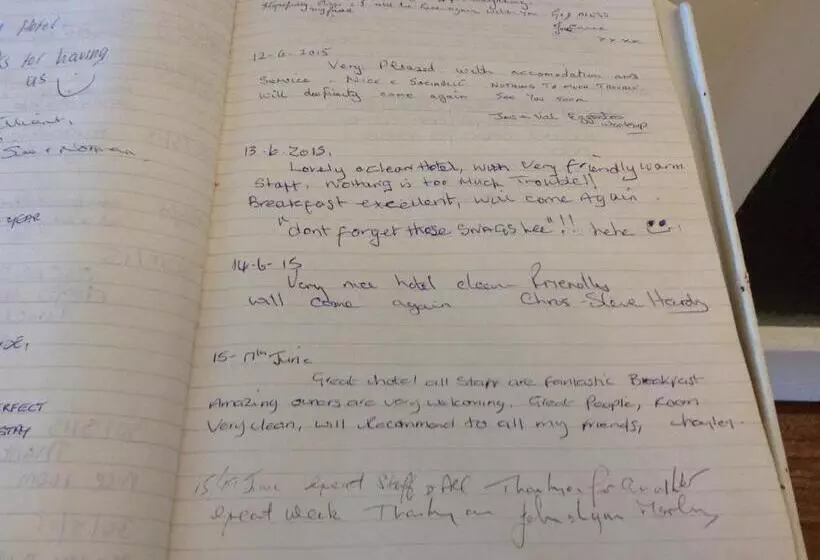 Hotel
for having
us
Sue + Norman
YEAR
PERFECT
STAY
God Bless
xxxx
12-6-2015
Very Pleased with accomodation and
Service - Nice & Sociable Nothing to much Trouble
will definitly come again See you soon
Jim + Val
13.6.2015.
Lovely & clean Hotel, with very friendly warm
Staff, Nothing is too much Trouble!!
Breakfast excellent, will come Again.
"dont forget those SNAGS Lee"!! hehe
14-6-15
Very nice hotel clean Friendly
will come again Chris - Steve Hardy
15-17th June
Great hotel all Staff are fantastic Breakfast
Amazing owners are very welcoming. Great People, Room
Very clean, will Recommend to all my friends,
15th June great Staff & All Thankyou for Another
great week Thankyou John & Lynn